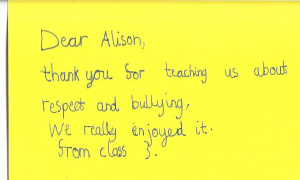 Dear Alison,
thank you for teaching us about
respect and bullying.
We really enjoyed it.
from class 3.